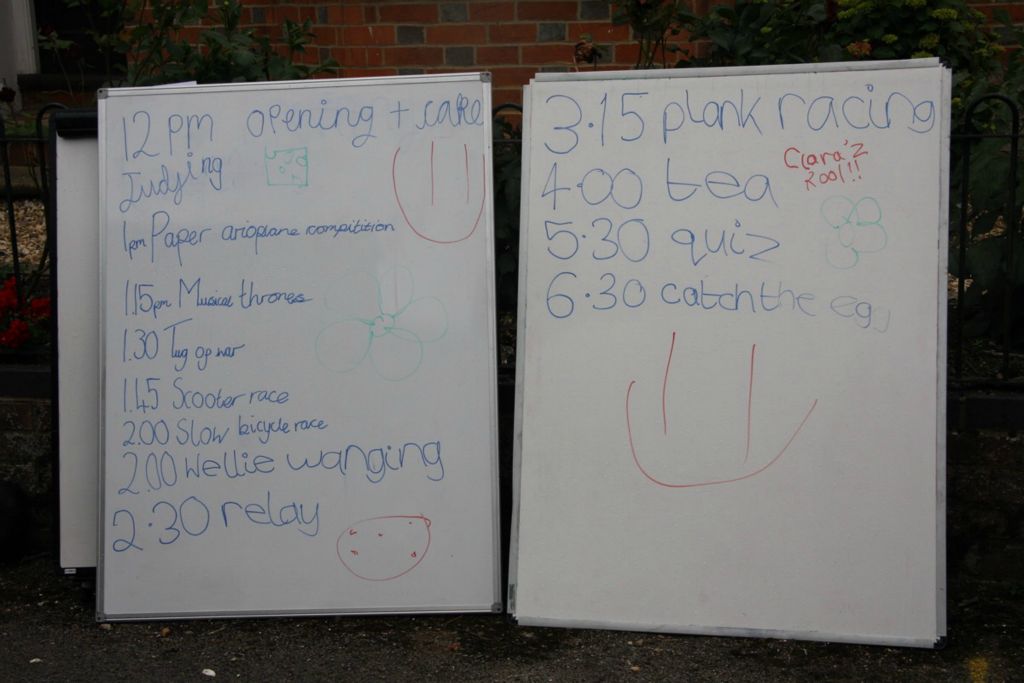 12pm opening + cake
Judjing
1pm Paper arioplane compitition
1.15pm Musical thrones
1.30 Tug of war
1.45 Scooter race
2.00 Slow bicycle race
2.00 Wellie wanging
2.30 relay
3.15 plank racing
Clara'z
Rool!!
4.00 tea
5.30 quiz
6.30 catch the egg